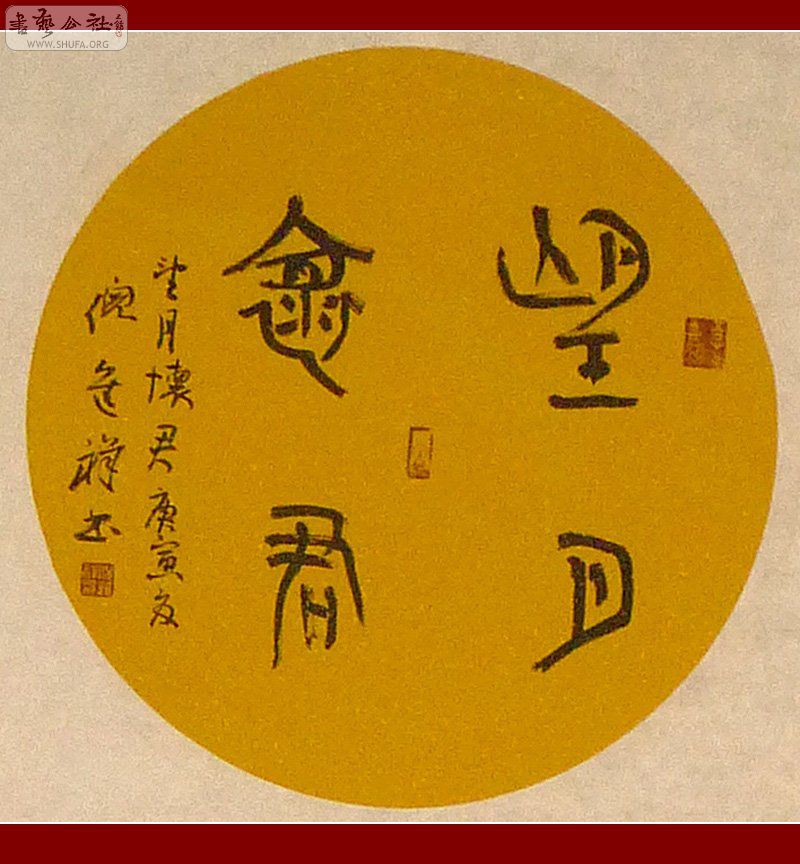 書藝公社
WWW.SHUFA.ORG
望月
褱君
望月懷君庚寅夏
倪祥书